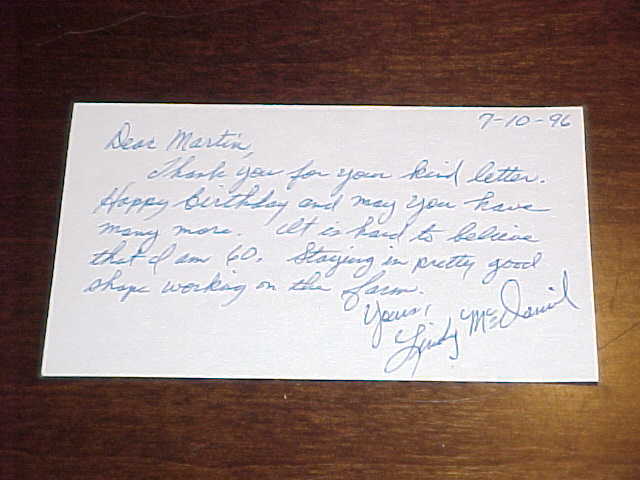 7-10-96
Dear Martin,
Thank you for your kind letter.
Happy Birthday and may you have
many more. It is hard to believe
that I am 60. Staying in pretty good
shape working on the farm.
Yours,
Lindy McDaniel